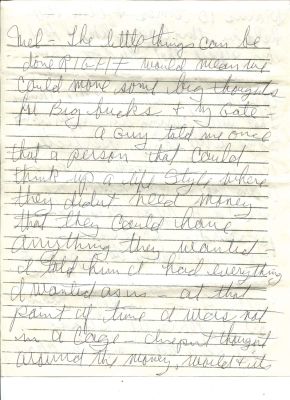 Mel - The little things can be
done RIGHT would mean we
could move some big thoughts
for Big bucks + my Gate
A Guy told me once
that a person that could
think up a life style where
they didn't need money
that they could have
anything they wanted
I told him I had everything
I wanted as is - at that
point of time I was not
in a Cage - deepest thought
around the money, world + its